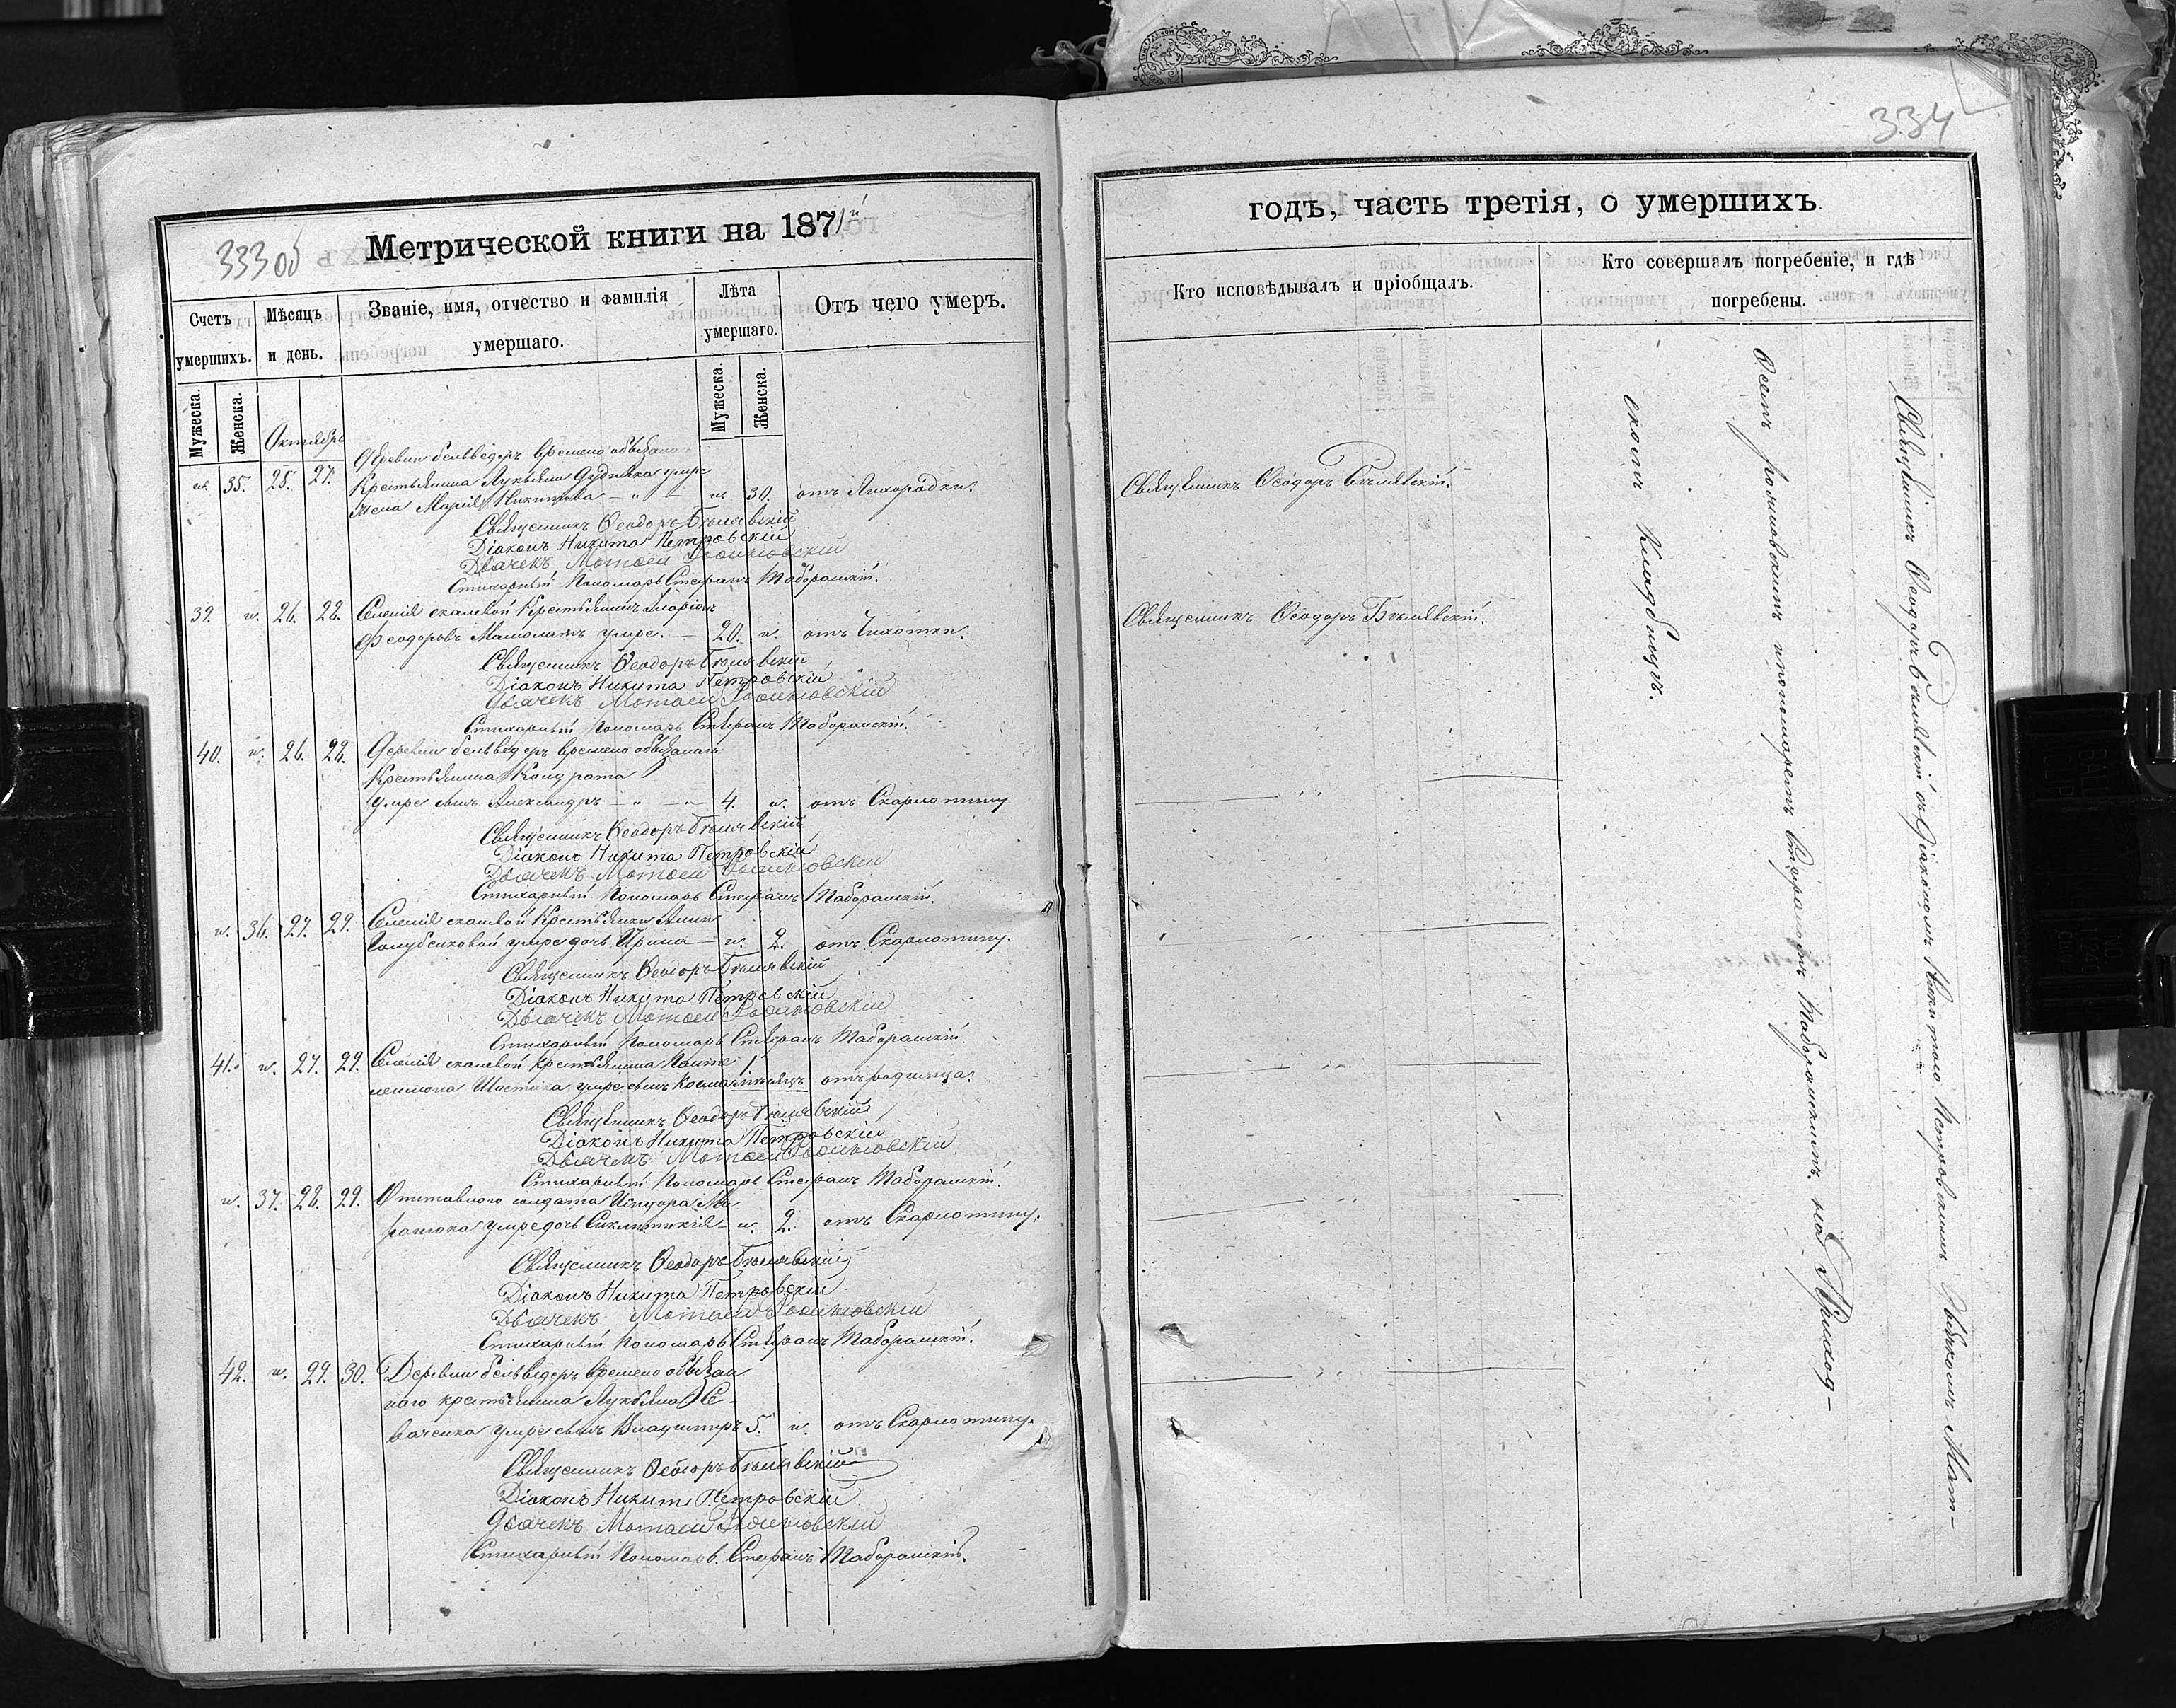 333об
Метрической книги на 1871й
Счетъ умершихъ.
Мужеска.
Женска.
Мѣсяцъ и день.
Званіе, имя, отчество и фамилія умершаго.
Лѣта умершаго.
Мужеска.
Женска.
Отъ чего умеръ.
Октябрь
Деревни бельведеръ временно обязанаго
35. 25. 27. Крестьянина Лукьяна умре
жена Марія Никитова 30. отъ Лихорадки.
Священникъ Ѳеодоръ Бѣлявскій
Діаконъ Никита Петровскій
Дьячекъ Матѳей
Стихарный Пономарь Стефанъ Таборанскій.
39. 26. 28. Селенія скалевой Крестьянинъ Иларіонъ
Феодоровъ умре. 20. отъ Чихотки.
Священникъ Ѳеодоръ Бѣлявскій
Діаконъ Никита Петровскій
Дьячекъ Матѳей
Стихарный Пономарь Стефанъ Таборанскій.
40. 26. 28. Деревни бельведеръ временно обязанаго
Крестьянина Кондрата
умре сынъ Александръ 4. отъ Скарлотину
Священникъ Ѳеодоръ Бѣлявскій
Діаконъ Никита Петровскій
Дьячекъ Матѳей
Стихарный Пономарь Стефанъ Таборанскій.
36. 27. 29. Селенія скалевой Крестьянки Анны
Голубенковой умре дочь Ирина 2. отъ Скарлотину.
Священникъ Ѳеодоръ Бѣлявскій
Діаконъ Никита Петровскій
Дьячекъ Матѳей
Стихарный Пономарь Стефанъ Таборанскій.
41. 27. 29. Селенія скалевой Крестьянина Панте
леимона Шостака умре сынъ Косма 1 мѣсяцъ отъ родимца.
Священникъ Ѳеодоръ Бѣлявскій
Діаконъ Никита Петровскій
Дьячекъ Матѳей
Стихарный Пономарь Стефанъ Таборанскій.
37. 28. 29. Отставного солдата Исидора Ма
умре дочь Сиклитикія 2. отъ Скарлотину.
Священникъ Ѳеодоръ Бѣлявскій
Діаконъ Никита Петровскій
Дьячекъ Матѳей
Стихарный Пономарь Стефанъ Таборанскій.
42. 29. 30. Деревни бельведеръ временно обязан
наго крестьянина Лукьяна
умре сынъ Владимиръ 5. отъ Скарлотину.
Священникъ Ѳеодоръ Бѣлявскій
Діаконъ Никита Петровскій
Дьячекъ Матѳей
Стихарный Пономарь Стефанъ Таборанскій.
334
годъ, часть третія, о умершихъ
Кто исповѣдывалъ и пріобщалъ.
Кто совершалъ погребеніе, и гдѣ погребены.
Священникъ Ѳеодоръ Бѣлявскій.
Священникъ Ѳеодоръ Бѣлявскій.
Священникъ Ѳеодоръ Бѣлявскій съ Діакономъ Никитою Петровскимъ Дьячкомъ Мат-
ѳеемъ и пономаремъ Стефаномъ Таборанскимъ. на Приход-
скомъ Кладбищѣ.